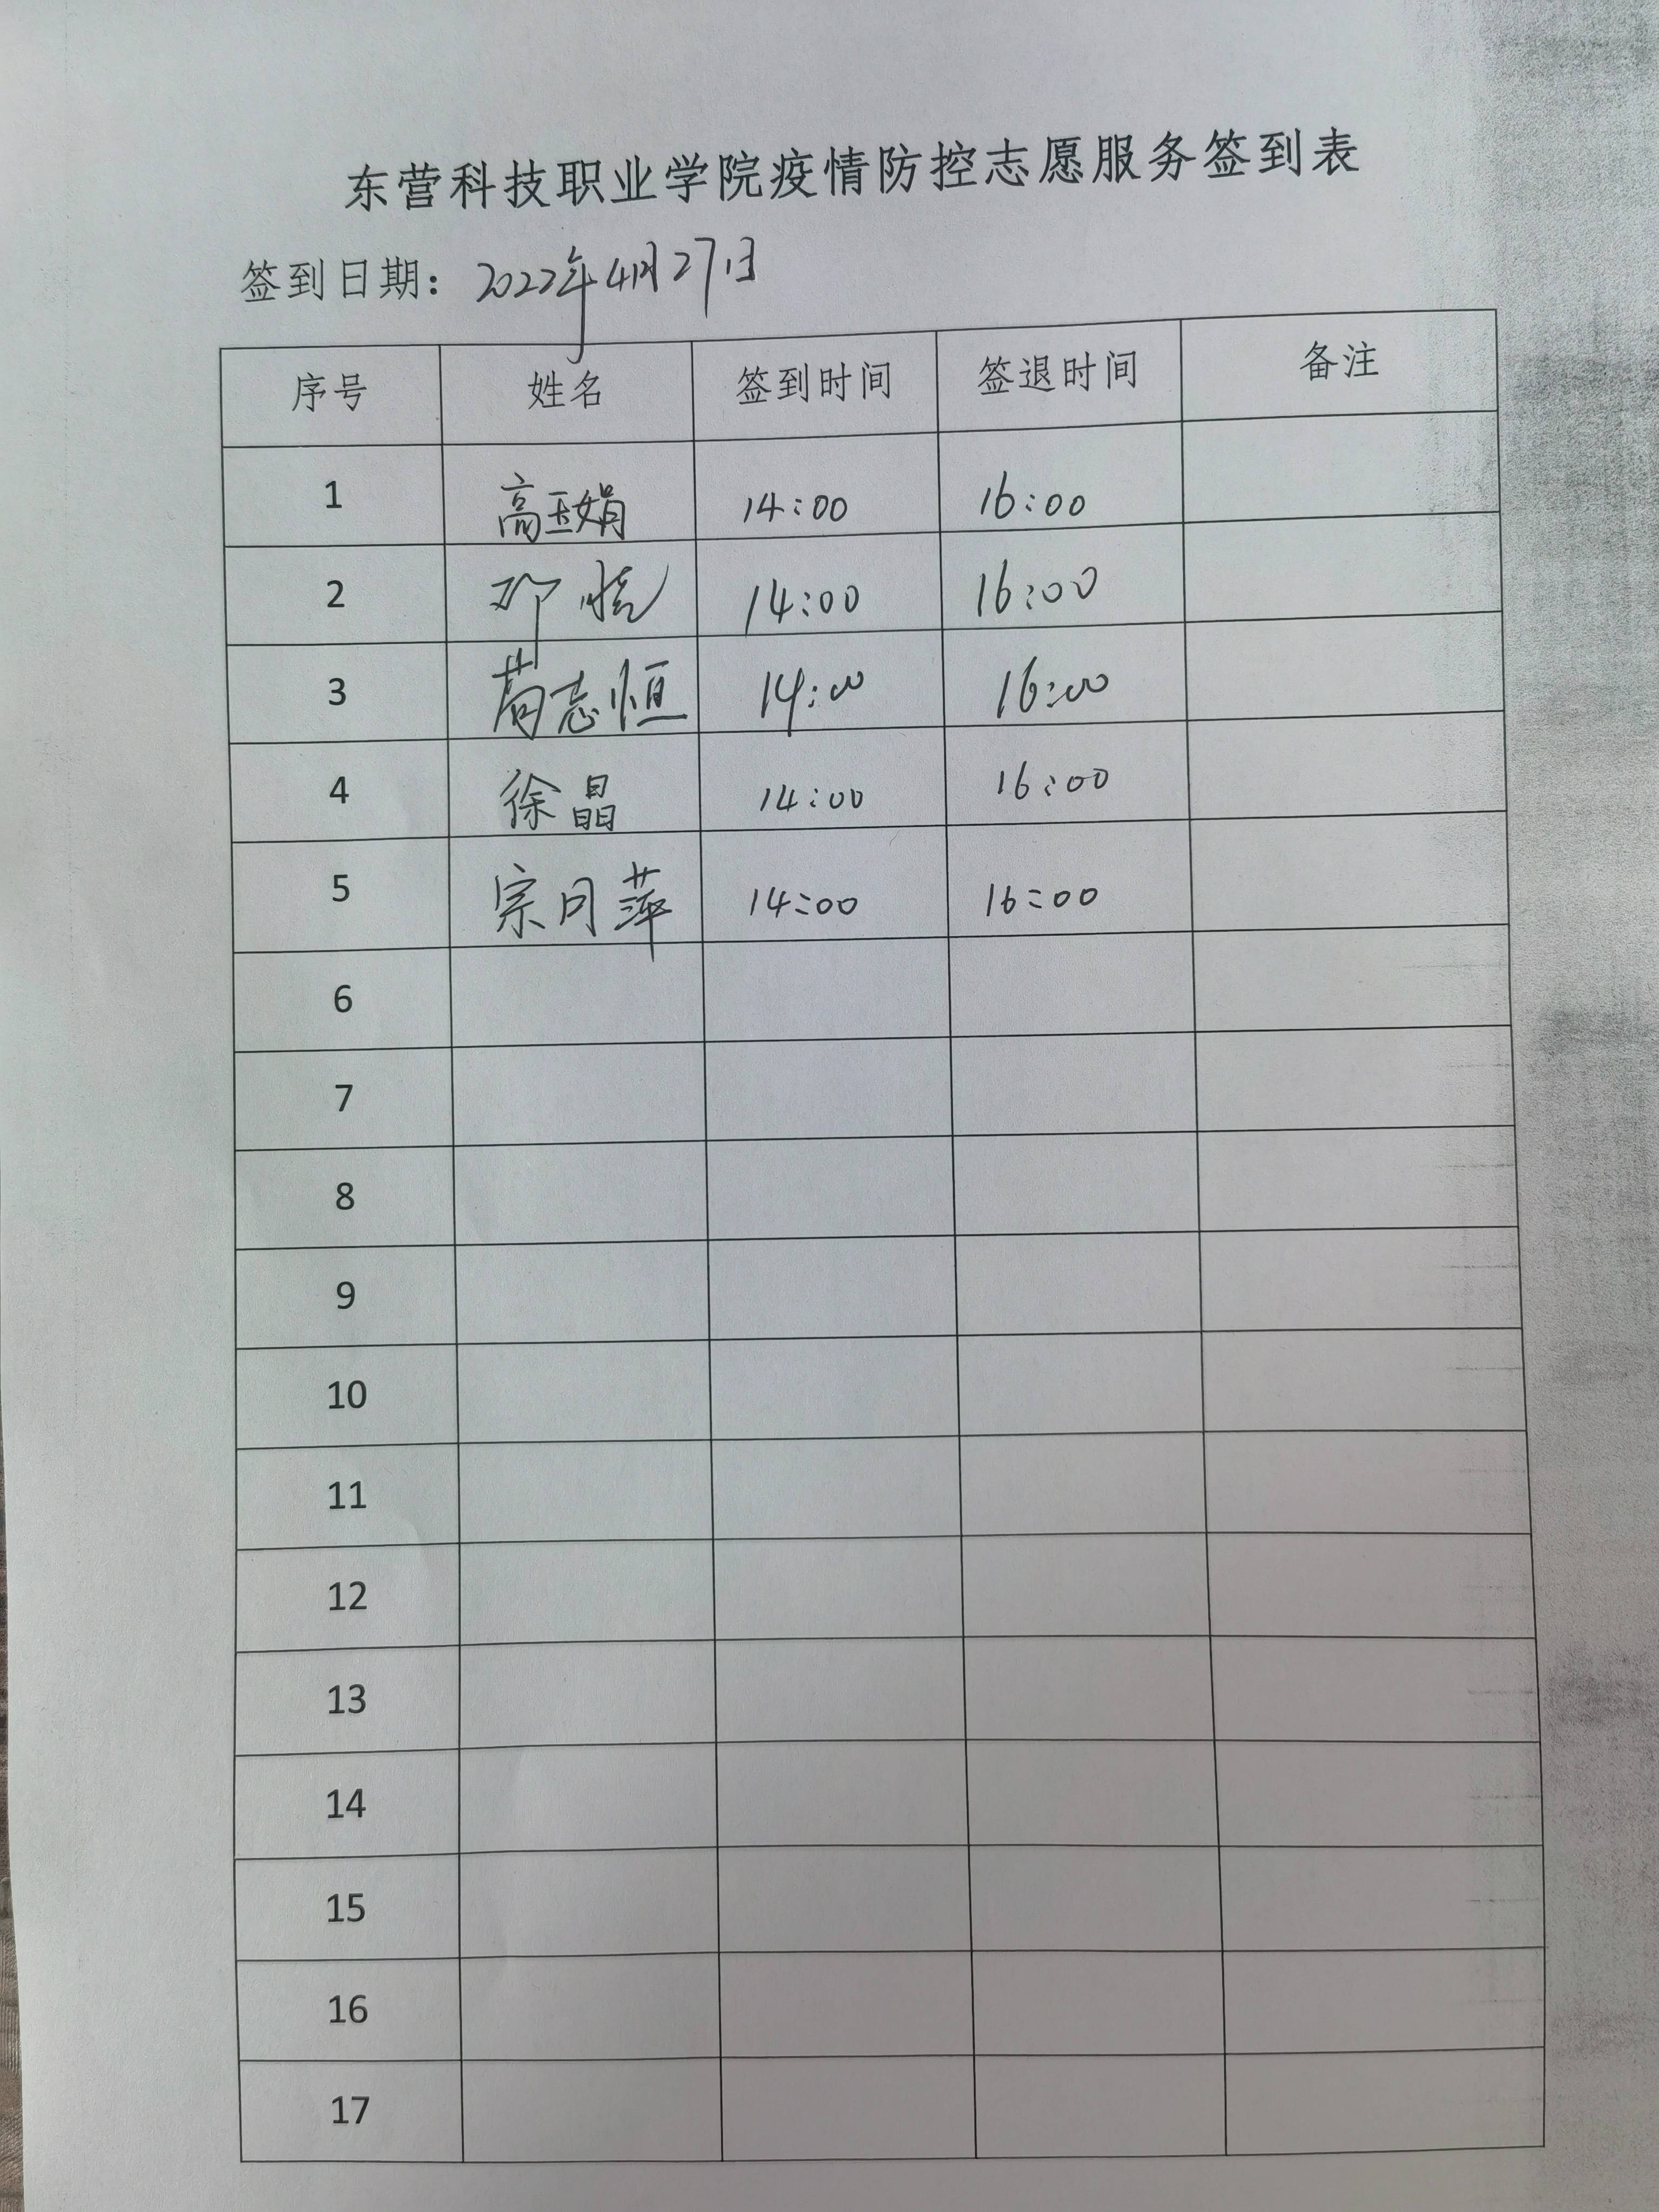 东营科技职业学院疫情防控志愿服务签到表
签到日期：2022年4月27日
序号 姓名 签到时间 签退时间 备注
1 高玉娟 14:00 16:00
2 14:00 16:00
3 苟志恒 14:00 16:00
4 徐晶 14:00 16:00
5 宗月萍 14:00 16:00
6
7
8
9
10
11
12
13
14
15
16
17